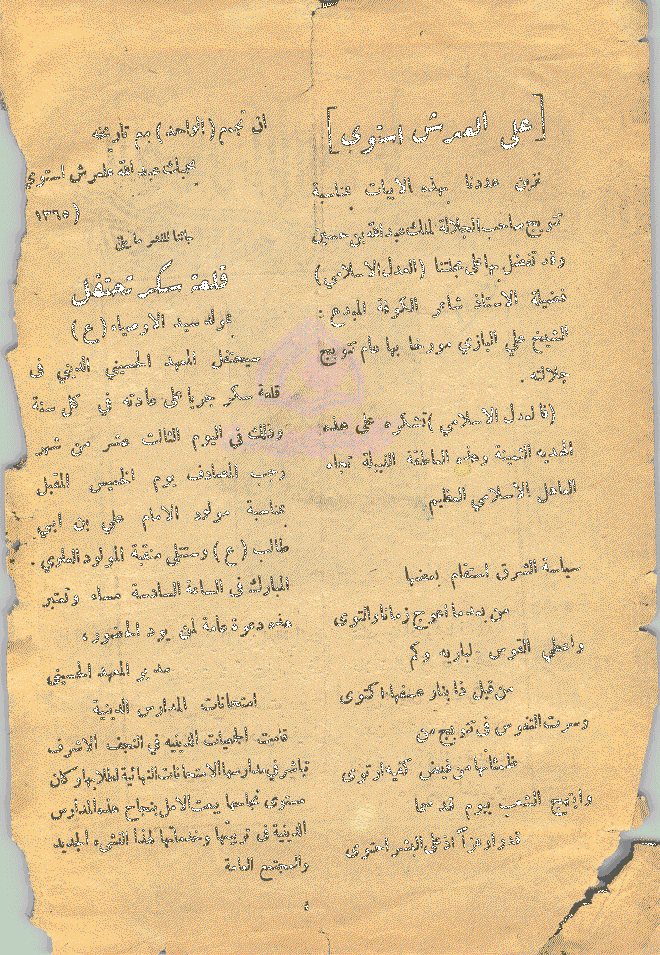 [على العرش استوى]
نزين عددنا بهذه الابيات بمناسبة
تتويج صاحب الجلالة الملك عبد الله بن حسين
وقد تفضل بها على مجلتنا (العدل الاسلامي)
فضيلة الاستاذ شاعر الكوفة المبدع :
الشيخ علي البازي مورخا بها عام تتويج
جلالته .
(فالعدل الاسلامي) تشكره على هذه
الهديه الثمينة وهذه العاطفة النبيلة تجاه
العاهل الاسلامي العظيم
سياسة الشرق استقام بعضها
من بعدما اعوج زمانا والتوى
واعطي القوس لباريه وكم
من قبل ذا بنار عسفها اكتوى
وسرت النفوس في تتويج من
من فيض كفيه ارتوى
وابتهج الشعب بيوم قد سما
على البشر احتوى
(الواحد) بم تاريخه
بملك عبد الله عرش استوى
(١٣٦٥
قلعة سكر تحتفل
بمولد سيد الاوصياء (ع)
سيحتفل المعهد الحسيني الديني في
قلعة سكر جريا على عادته في كل سنة
وذلك في اليوم الثالث عشر من شهر
رجب المصادف يوم الخميس المقبل
بمناسبة مولود الامام علي بن ابي
طالب (ع) وستتلى منقبة المولود العلوي
المبارك في الساعة السادسة مساء وتعتبر
هذه دعوة عامة لمن يود الحضور ،
مدير المعهد الحسيني
امتحانات المدارس الدينية
قامت الهيئات الدينيه في النجف الاشرف
تباشر في مدارسها الامتحانات النهائية لطلابها وكان
مستوى نجاحها يبعث الامل بنجاح هذه المدارس
الدينية في تربيتها وخدماتها لهذا النشء الجديد
والمجتمع العامة
٤